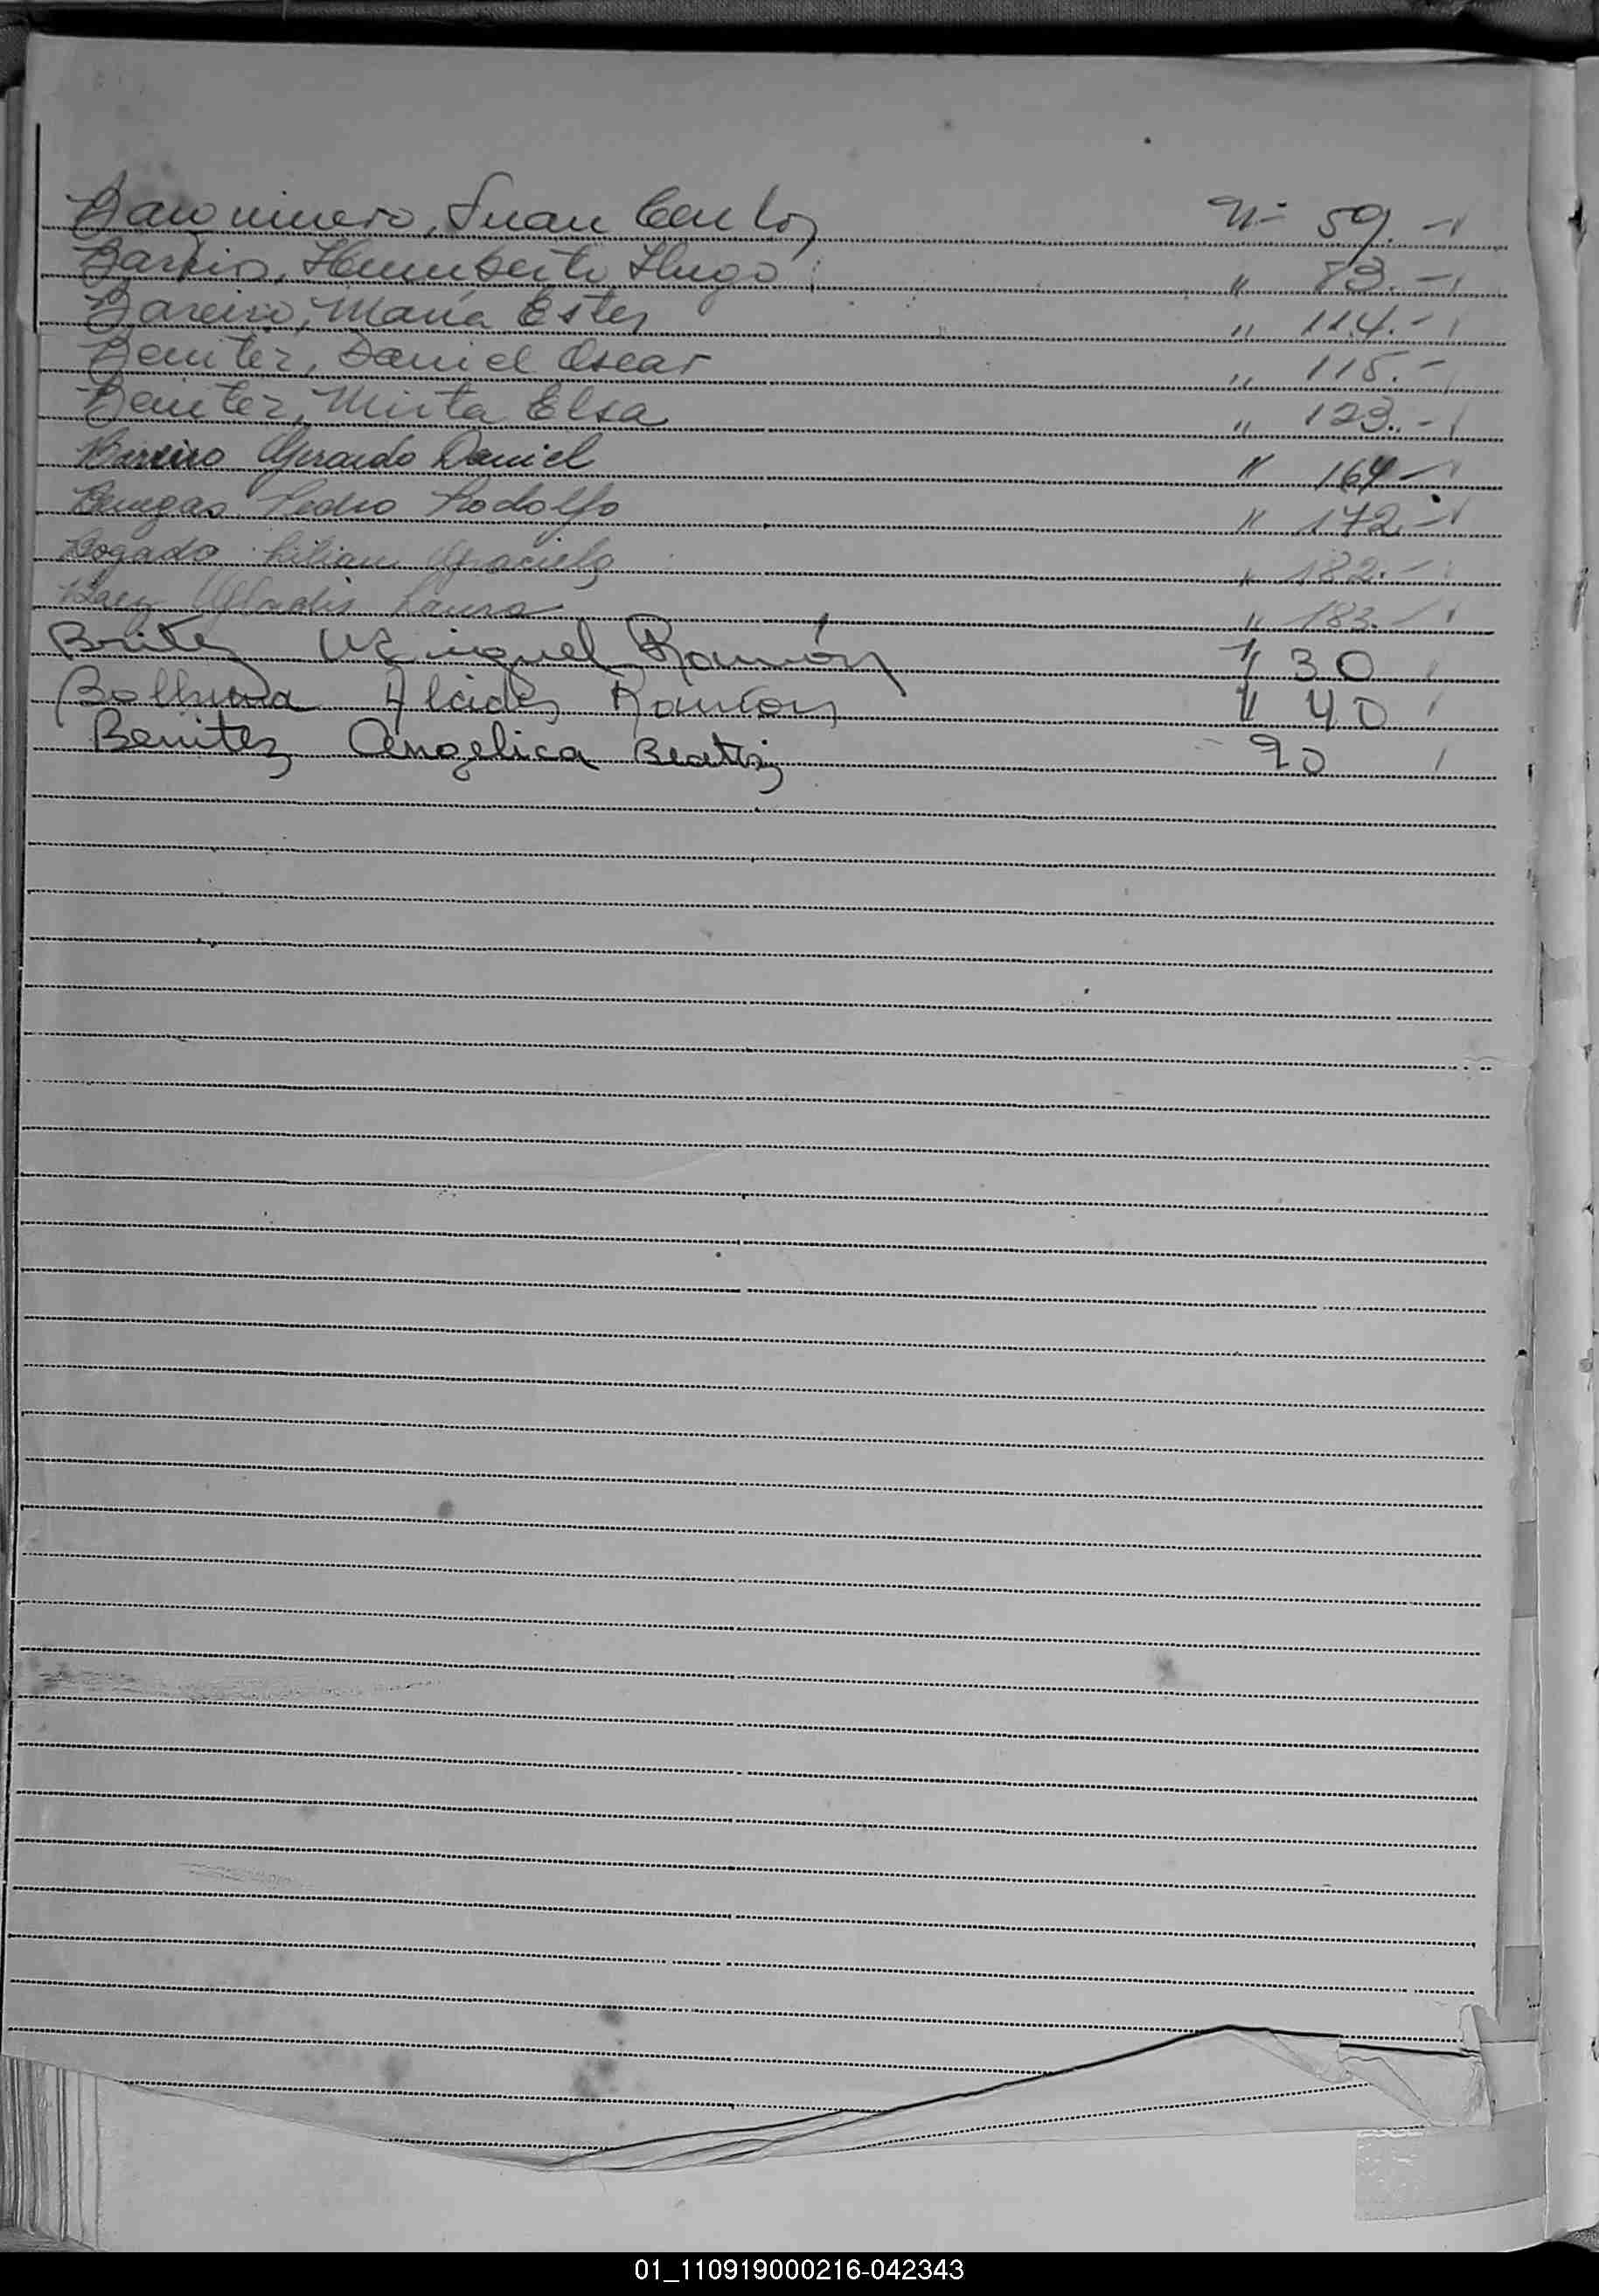 Barquinero, Juan Carlos Nº 59.-
Barrio, Humberto Hugo " 83.-
Bareiro, María Ester " 114.-
Benitez, Daniel Oscar " 115.-
Benitez, Mirta Elsa " 123.-
Bareiro Gerardo Daniel " 164-
Benegas Pedro Rodolfo " 172.-
Bogado Lilian Graciela " 182.-
Baez Gladis Laura " 183.-
Britez Miguel Ramón " 30
Alcides Ramón " 40
Benitez Angelica Beatriz 90
01_110919000216-042343